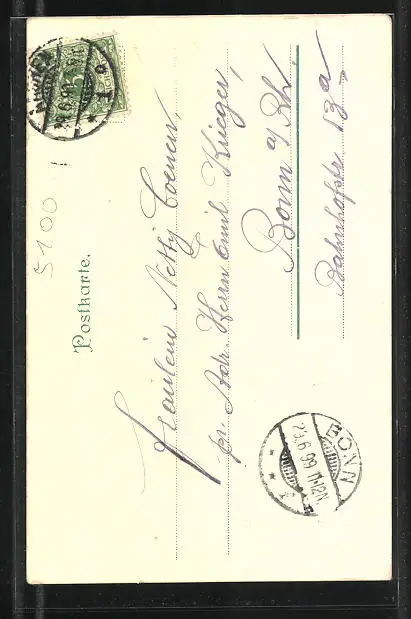 Postkarte.
Fräulein Netty Coenen,
pr. Adr. Herrn Emil Krieger,
Bonn a/Rh.
Bahnhofstr. 13a
5100
BONN
23.6.99
11-12N